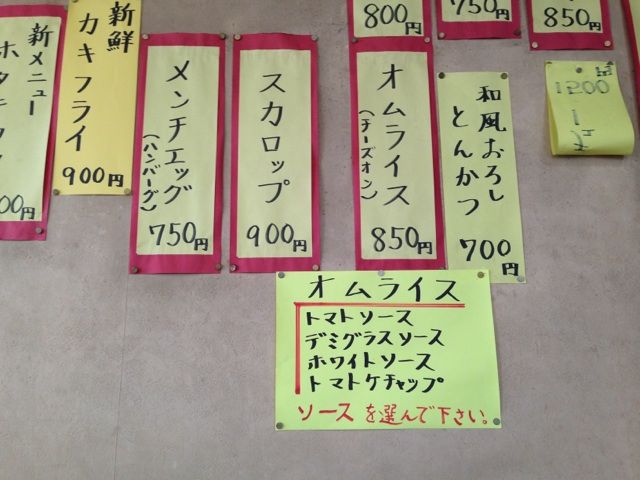 800円
750円
850円
新メニュー
00円
新鮮
カキフライ
900円
メンチエッグ
(ハンバーグ)
750円
スカロップ
900円
オムライス
(チーズオン)
850円
和風おろし
とんかつ
700円
オムライス
トマトソース
デミグラスソース
ホワイトソース
トマトケチャップ
ソースを選んで下さい。